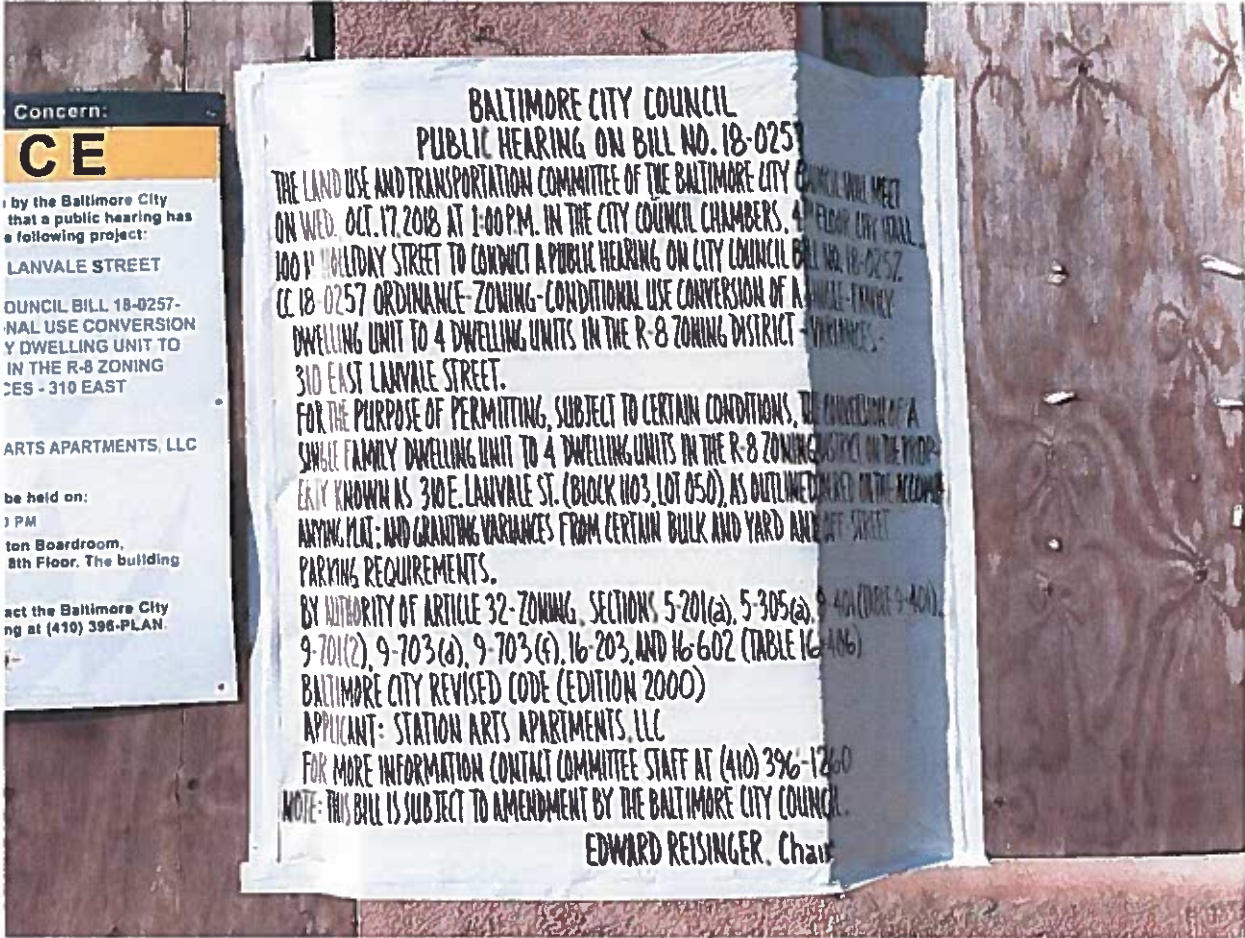 Concern:
CE
by the Baltimore City
that a public hearing has
following project:
LANVALE STREET
OUNCIL BILL 18-0257-
NAL USE CONVERSION
Y DWELLING UNIT TO
IN THE R-8 ZONING
CES - 310 EAST
ARTS APARTMENTS, LLC
be held on:
PM
ton Boardroom,
8th Floor. The building
act the Baltimore City
ng at (410) 396-PLAN.
BALTIMORE CITY COUNCIL
PUBLIC HEARING ON BILL NO. 18-0257
THE LAND USE AND TRANSPORTATION COMMITTEE OF THE BALTIMORE CITY COUNCIL WILL MEET
ON WED. OCT. 17, 2018 AT 1:00 P.M. IN THE CITY COUNCIL CHAMBERS, 4TH FLOOR, CITY HALL,
100 N HOLLIDAY STREET TO CONDUCT A PUBLIC HEARING ON CITY COUNCIL BILL NO. 18-0257.
CC 18-0257 ORDINANCE-ZONING-CONDITIONAL USE CONVERSION OF A SINGLE-FAMILY
DWELLING UNIT TO 4 DWELLING UNITS IN THE R-8 ZONING DISTRICT - VARIANCES -
310 EAST LANVALE STREET.
FOR THE PURPOSE OF PERMITTING, SUBJECT TO CERTAIN CONDITIONS, THE CONVERSION OF A
SINGLE FAMILY DWELLING UNIT TO 4 DWELLING UNITS IN THE R-8 ZONING DISTRICT ON THE PROP-
ERTY KNOWN AS 310 E. LANVALE ST. (BLOCK 1103, LOT 050), AS OUTLINED IN RED ON THE ACCOMP-
ANYING PLAT; AND GRANTING VARIANCES FROM CERTAIN BULK AND YARD AND OFF-STREET
PARKING REQUIREMENTS.
BY AUTHORITY OF ARTICLE 32-ZONING, SECTIONS 5-201(a), 5-305(a), 9-401 (TABLE 9-401),
9-701(2), 9-703(d), 9-703(f), 16-203, AND 16-602 (TABLE 16-406)
BALTIMORE CITY REVISED CODE (EDITION 2000)
APPLICANT: STATION ARTS APARTMENTS, LLC
FOR MORE INFORMATION CONTACT COMMITTEE STAFF AT (410) 396-1260
NOTE: THIS BILL IS SUBJECT TO AMENDMENT BY THE BALTIMORE CITY COUNCIL.
EDWARD REISINGER, Chair